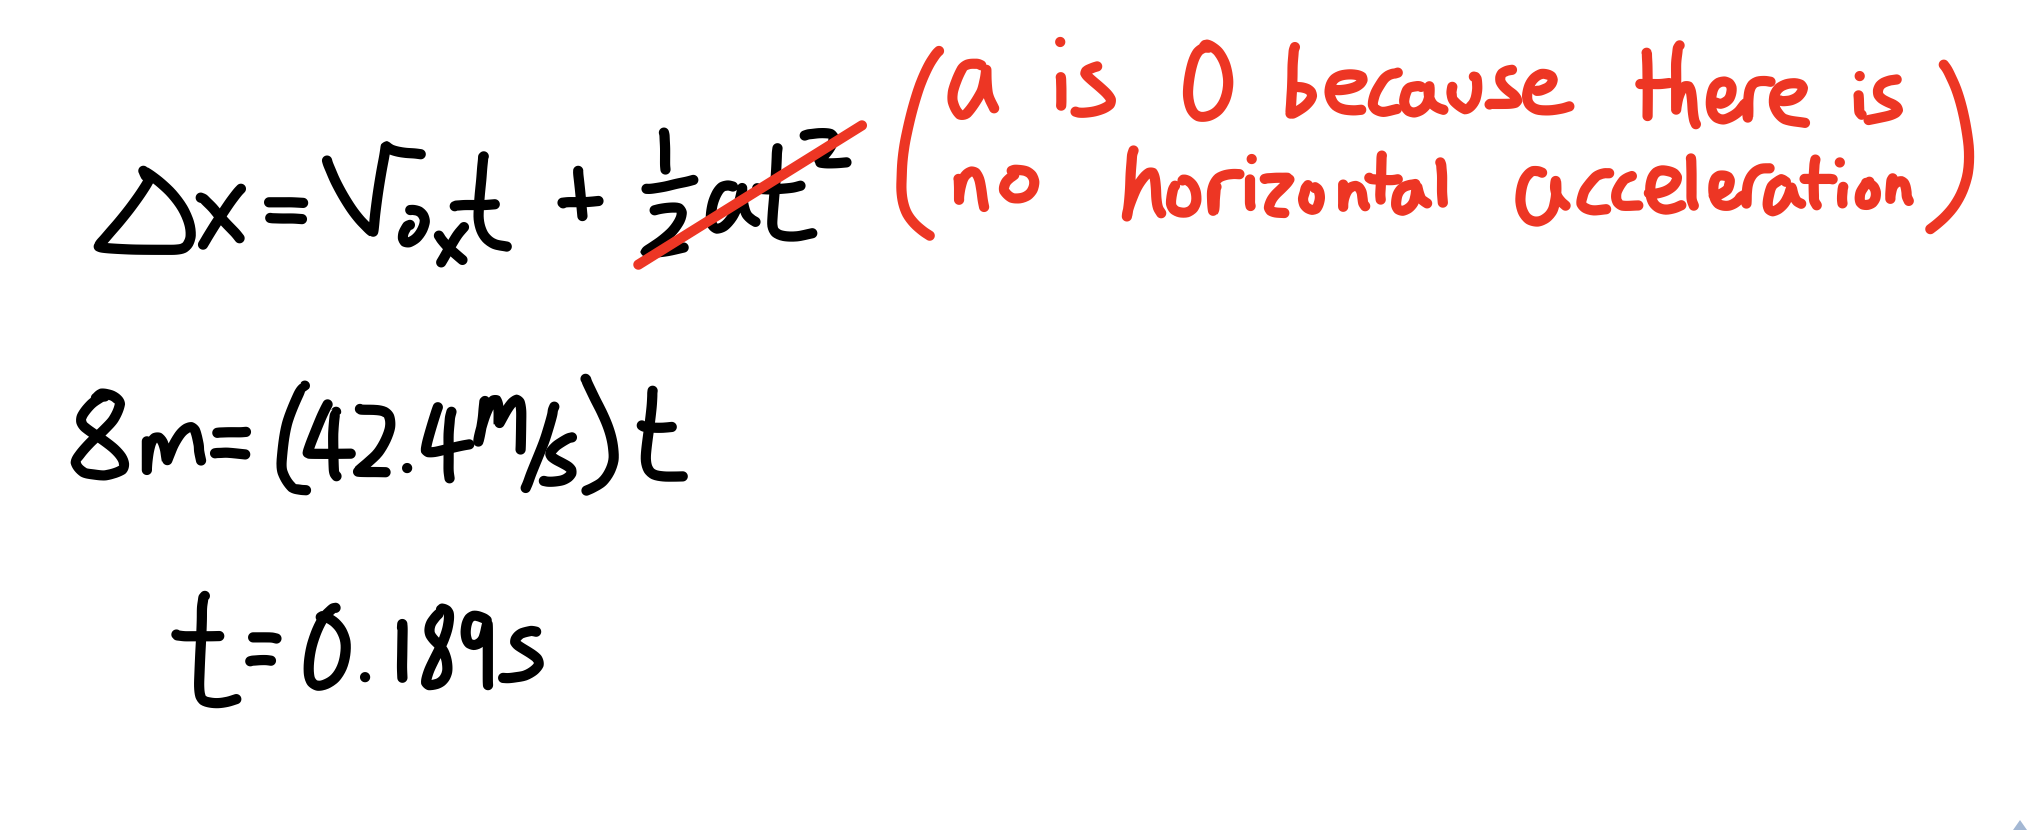 Δx = V₀ₓt + ½at² (a is 0 because there is
no horizontal acceleration)
8m = (42.4 m/s) t
t = 0.189s